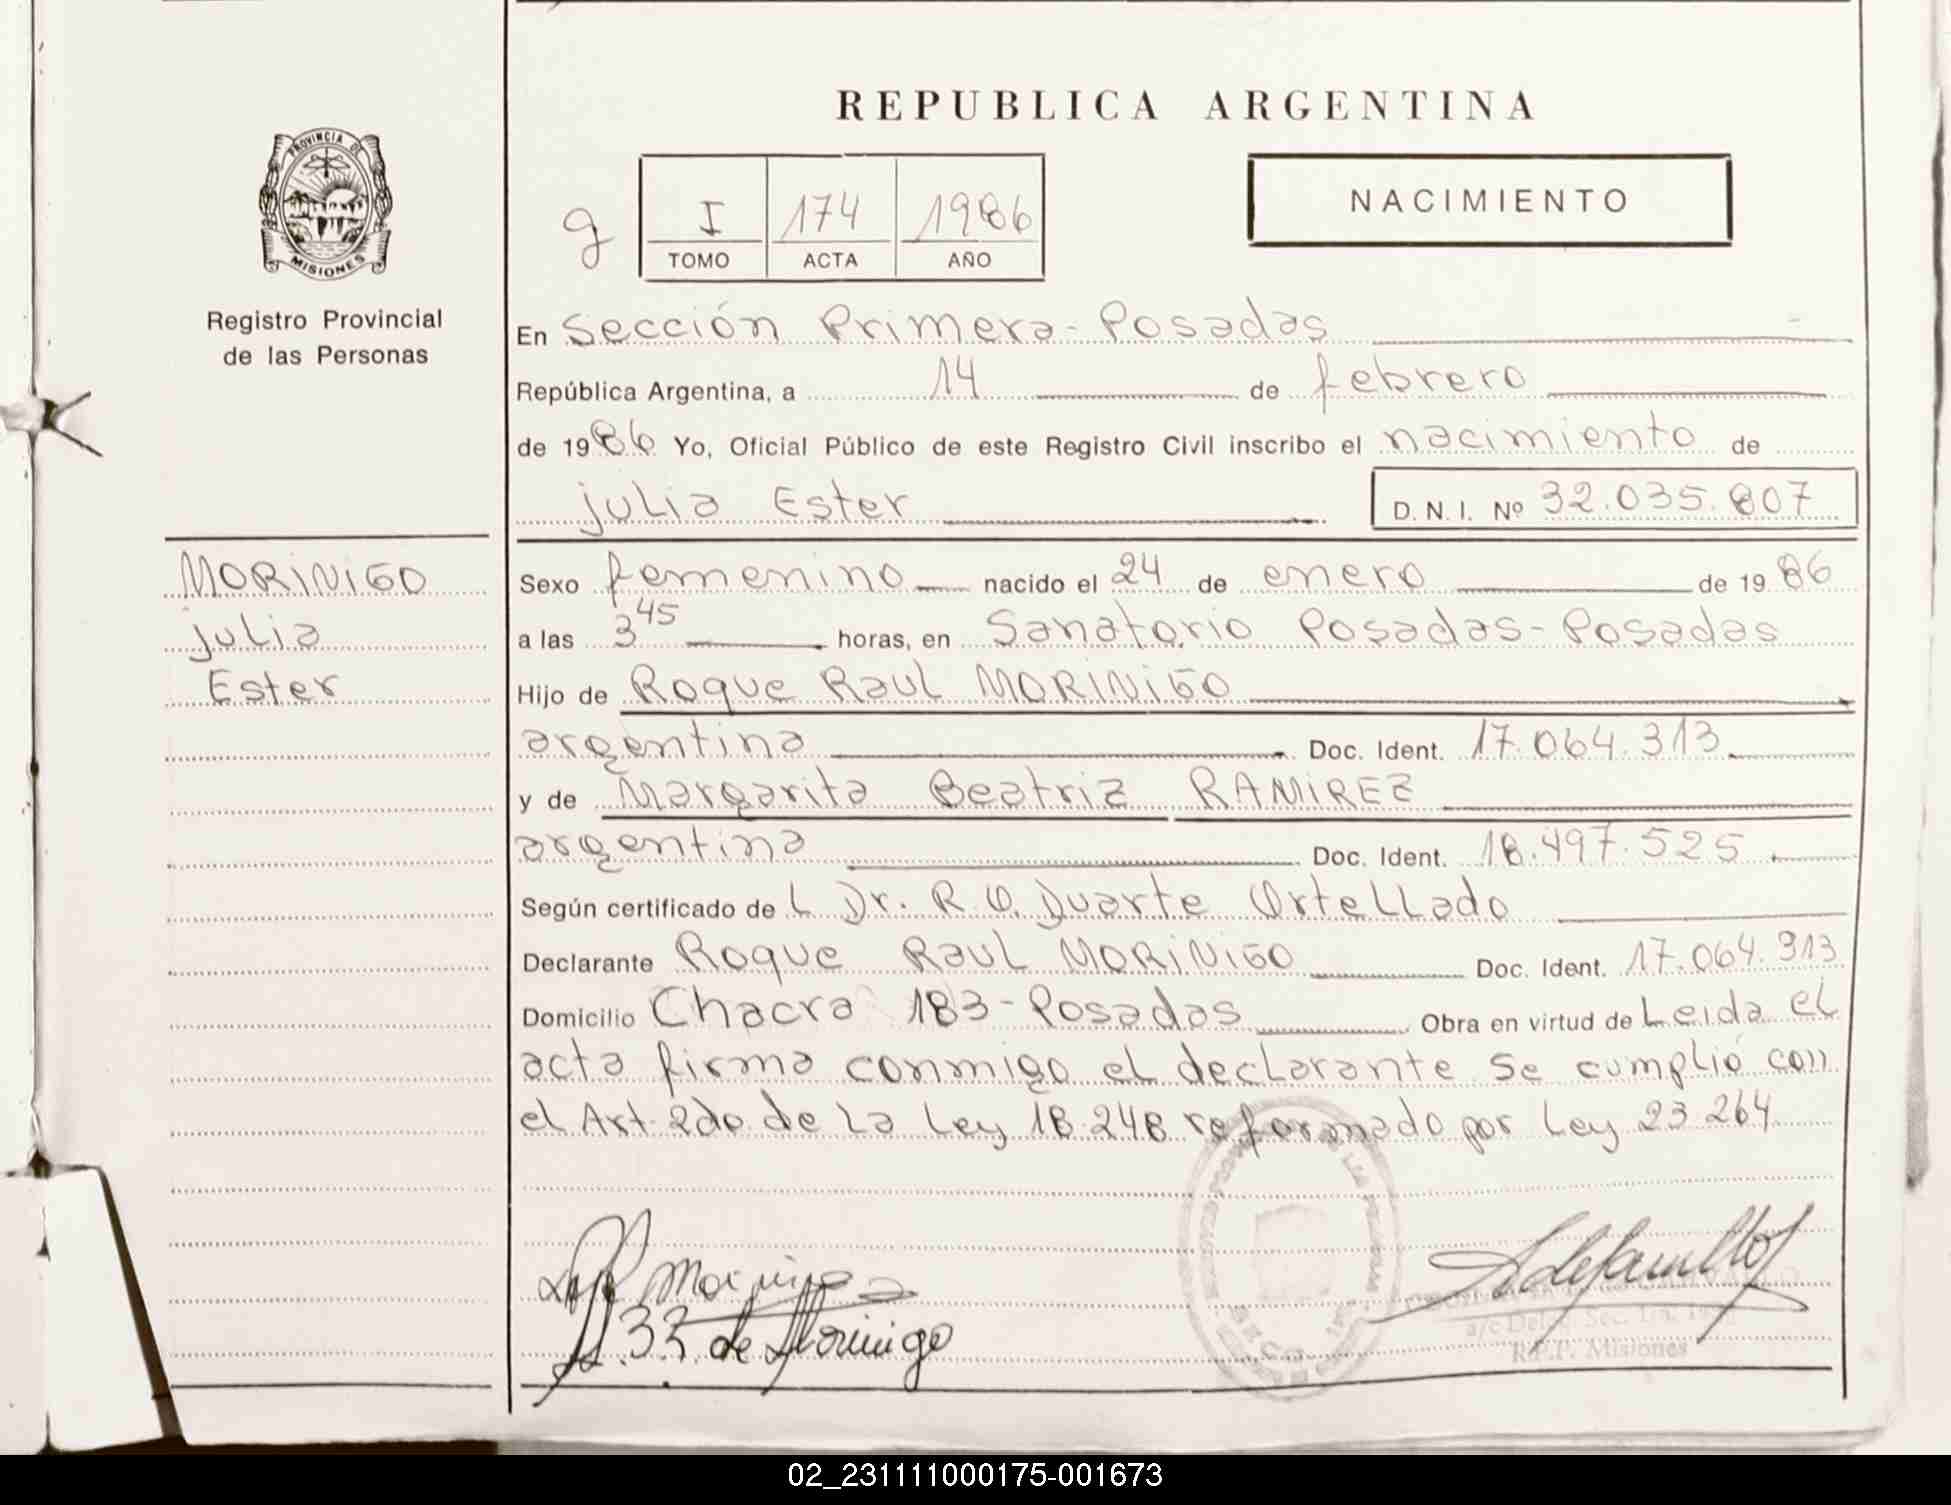 REPUBLICA ARGENTINA
PROVINCIA DE
MISIONES
Registro Provincial
de las Personas
g I 174 1986
TOMO ACTA AÑO
NACIMIENTO
En Sección Primera - Posadas
República Argentina, a 14 de febrero
de 1986 Yo, Oficial Público de este Registro Civil inscribo el nacimiento de
julia Ester D.N.I. Nº 32.035.807
MORINIGO
julia
Ester
Sexo femenino nacido el 24 de enero de 1986
a las 3 45 horas, en Sanatorio Posadas - Posadas
Hijo de Roque Raul MORINIGO
argentina Doc. Ident. 17.064.313
y de Margarita Beatriz RAMIREZ
argentina Doc. Ident. 18.497.525
Según certificado de L Dr. R.O. Duarte Ortellado
Declarante Roque Raul MORINIGO Doc. Ident. 17.064.313
Domicilio Chacra 183 - Posadas Obra en virtud de Leida el
acta firma conmigo el declarante se cumplió con
el Art. 2do de la Ley 18.248 reformado por Ley 23.264
de Morinigo
a/c Deleg. Sec. 1ra.
R.P.P. Misiones
02_231111000175-001673